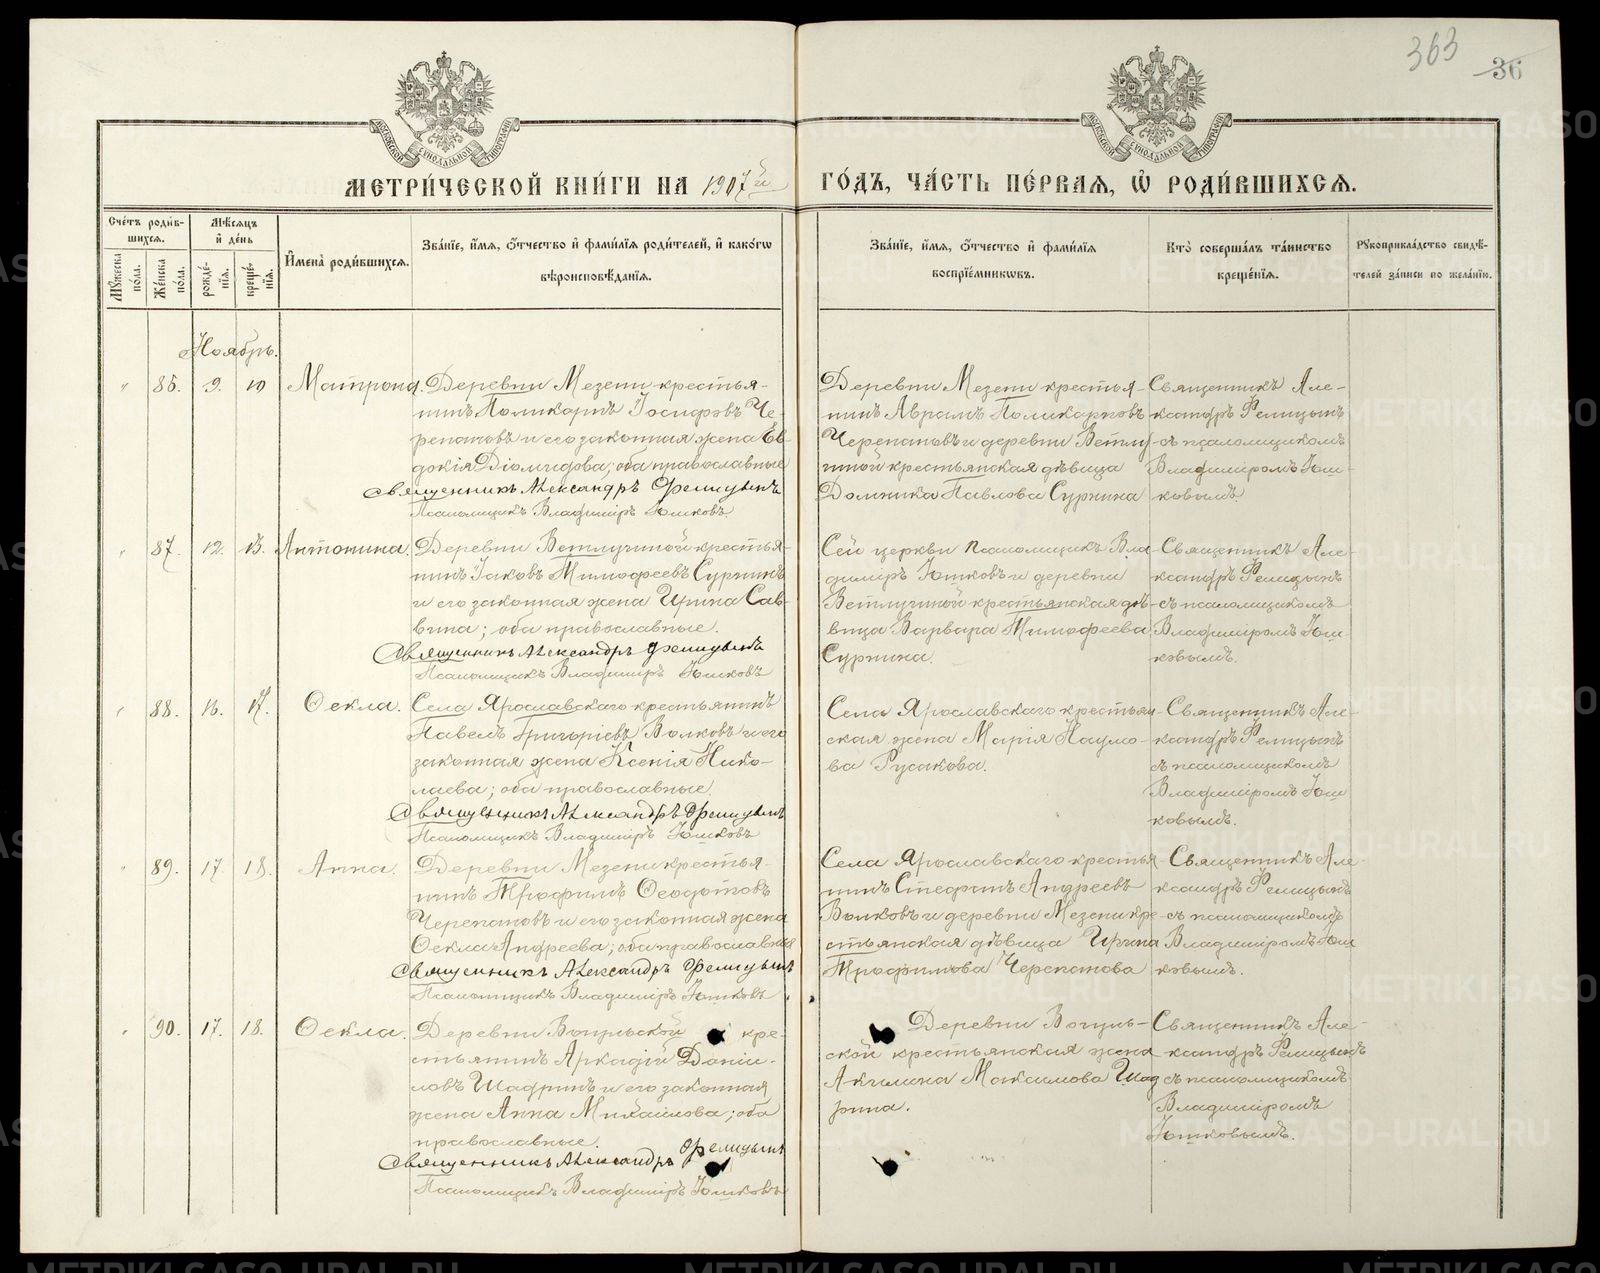 363
36
МОСКОВСКОЙ СѴНОДАЛЬНОЙ ТИПОГРАФІИ
МОСКОВСКОЙ СѴНОДАЛЬНОЙ ТИПОГРАФІИ
МЕТРИ́ЧЕСКОЙ КНИ́ГИ НА 1907й
ГО́ДЪ, ЧА́СТЬ ПЕ́РВАѦ, Ѡ҆ РОДИ́ВШИХСѦ.
Сче́тъ роди́в-
шихсѧ.
Мꙋ́жеска по́ла.
Же́нска по́ла.
Мѣ́сѧцъ
и҆ де́нь
рожде́-
нїѧ.
креще́-
нїѧ.
И҆мена̀ роди́вшихсѧ.
Зва́нїе, и҆́мѧ, ѻ҆́тчество и҆ фами́лїѧ роди́телей, и҆ како́гѡ
вѣроисповѣ́данїѧ.
Зва́нїе, и҆́мѧ, ѻ҆́тчество и҆ фами́лїѧ
воспрїе́мникѡвъ.
Кто̀ соверша́лъ та́инство
креще́нїѧ.
Рꙋкоприкла́дство свидѣ́-
телей за́писи по жела́нїю.
Ноябрь.
" 86. 9. 10 Матрона.
Деревни Мезени крестья-
нинъ Поликарпъ Іосифовъ Че-
репановъ и его законная жена Ев-
докія Діомидова; оба православные
Священникъ Александръ Фелицынъ
Псаломщикъ Владиміръ Юшковъ
Деревни Мезени крестья-
нинъ Аврамъ Поликарповъ
Черепановъ и деревни Ветлу-
гиной крестьянская дѣвица
Домника Павлова Сурнина
Священникъ Але-
ксандръ Фелицынъ
съ псаломщикомъ
Владиміромъ Юш-
ковымъ
" 87. 12. 13. Антонина.
Деревни Ветлугиной крестья-
нинъ Іаковъ Тимофеевъ Сурнинъ
и его законная жена Ирина Сав-
вина; оба православные.
Священникъ Александръ Фелицынъ
Псаломщикъ Владиміръ Юшковъ
Сей церкви псаломщикъ Вла-
диміръ Юшковъ и деревни
Ветлугиной крестьянская дѣ-
вица Варвара Тимофеева
Сурнина.
Священникъ Але-
ксандръ Фелицынъ
съ псаломщикомъ
Владиміромъ Юш-
ковымъ.
" 88. 16. 17. Ѳекла.
Села Ярославскаго крестьянинъ
Павелъ Григоріевъ Волковъ и его
законная жена Ксенія Нико-
лаева; оба православные.
Священникъ Александръ Фелицынъ
Псаломщикъ Владиміръ Юшковъ
Села Ярославскаго крестьян-
ская жена Марія Наумо-
ва Русакова.
Священникъ Але-
ксандръ Фелицынъ
съ псаломщикомъ
Владиміромъ Юш-
ковымъ.
" 89. 17. 18. Анна.
Деревни Мезени крестья-
нинъ Трофимъ Ѳеодотовъ
Черепановъ и его законная жена
Ѳекла Андреева; оба православные
Священникъ Александръ Фелицынъ
Псаломщикъ Владиміръ Юшковъ
Села Ярославскаго крестья-
нинъ Стефанъ Андреевъ
Волковъ и деревни Мезени кре-
стьянская дѣвица Ирина
Трофимова Черепанова
Священникъ Але-
ксандръ Фелицынъ
съ псаломщикомъ
Владиміромъ Юш-
ковымъ.
" 90. 17. 18. Ѳекла.
Деревни Вогульской кре-
стьянинъ Аркадій Даніи-
ловъ Шадринъ и его законная
жена Анна Михайлова; оба
православные.
Священникъ Александръ Фелицынъ
Псаломщикъ Владиміръ Юшковъ
Деревни Вогуль-
ской крестьянская жена
Акилина Максимова Шад
рина.
Священникъ Але-
ксандръ Фелицынъ
съ псаломщикомъ
Владиміромъ
Юшковымъ.
METRIKI.GASO-URAL.RU